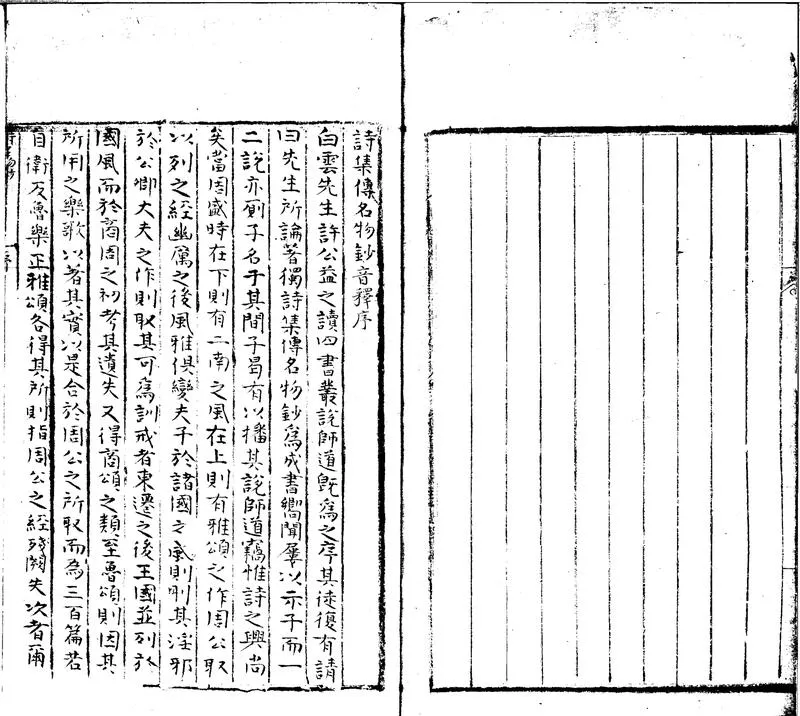 詩集傳名物鈔音釋序
白雲先生許公益之讀四書叢說師道既爲之序其徒復有請
曰先生所論著獨詩集傳名物鈔爲成書嚮聞屢以示子而一
二說亦廁子名于其間子曷有以播其說師道竊惟詩之興尚
矣當周盛時在下則有二南之風在上則有雅頌之作周公取
以列之經幽厲之後風雅俱變夫子於諸國之風則刪其淫邪
於公卿大夫之作則取其可爲訓戒者東遷之後王國並列於
國風而於商周之初考其遺失又得商頌之類至魯頌則因其
所用之樂歌以著其實以是合於周公之所取而為三百篇若
自衛反魯樂正雅頌各得其所則指周公之經殘闕失次者爾